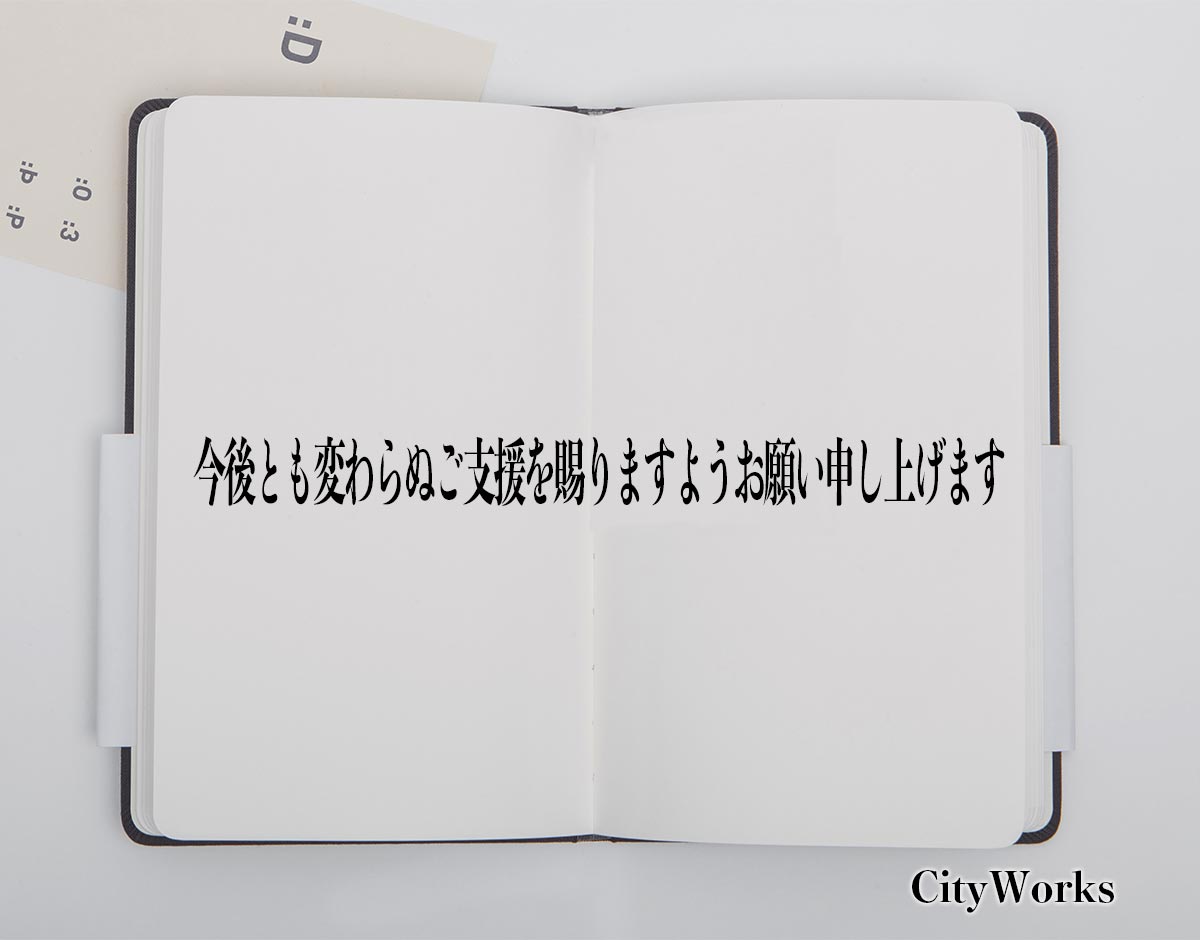 :D
:P
:O
:P
:3
今後とも変わらぬご支援を賜りますようお願い申し上げます
CityWorks